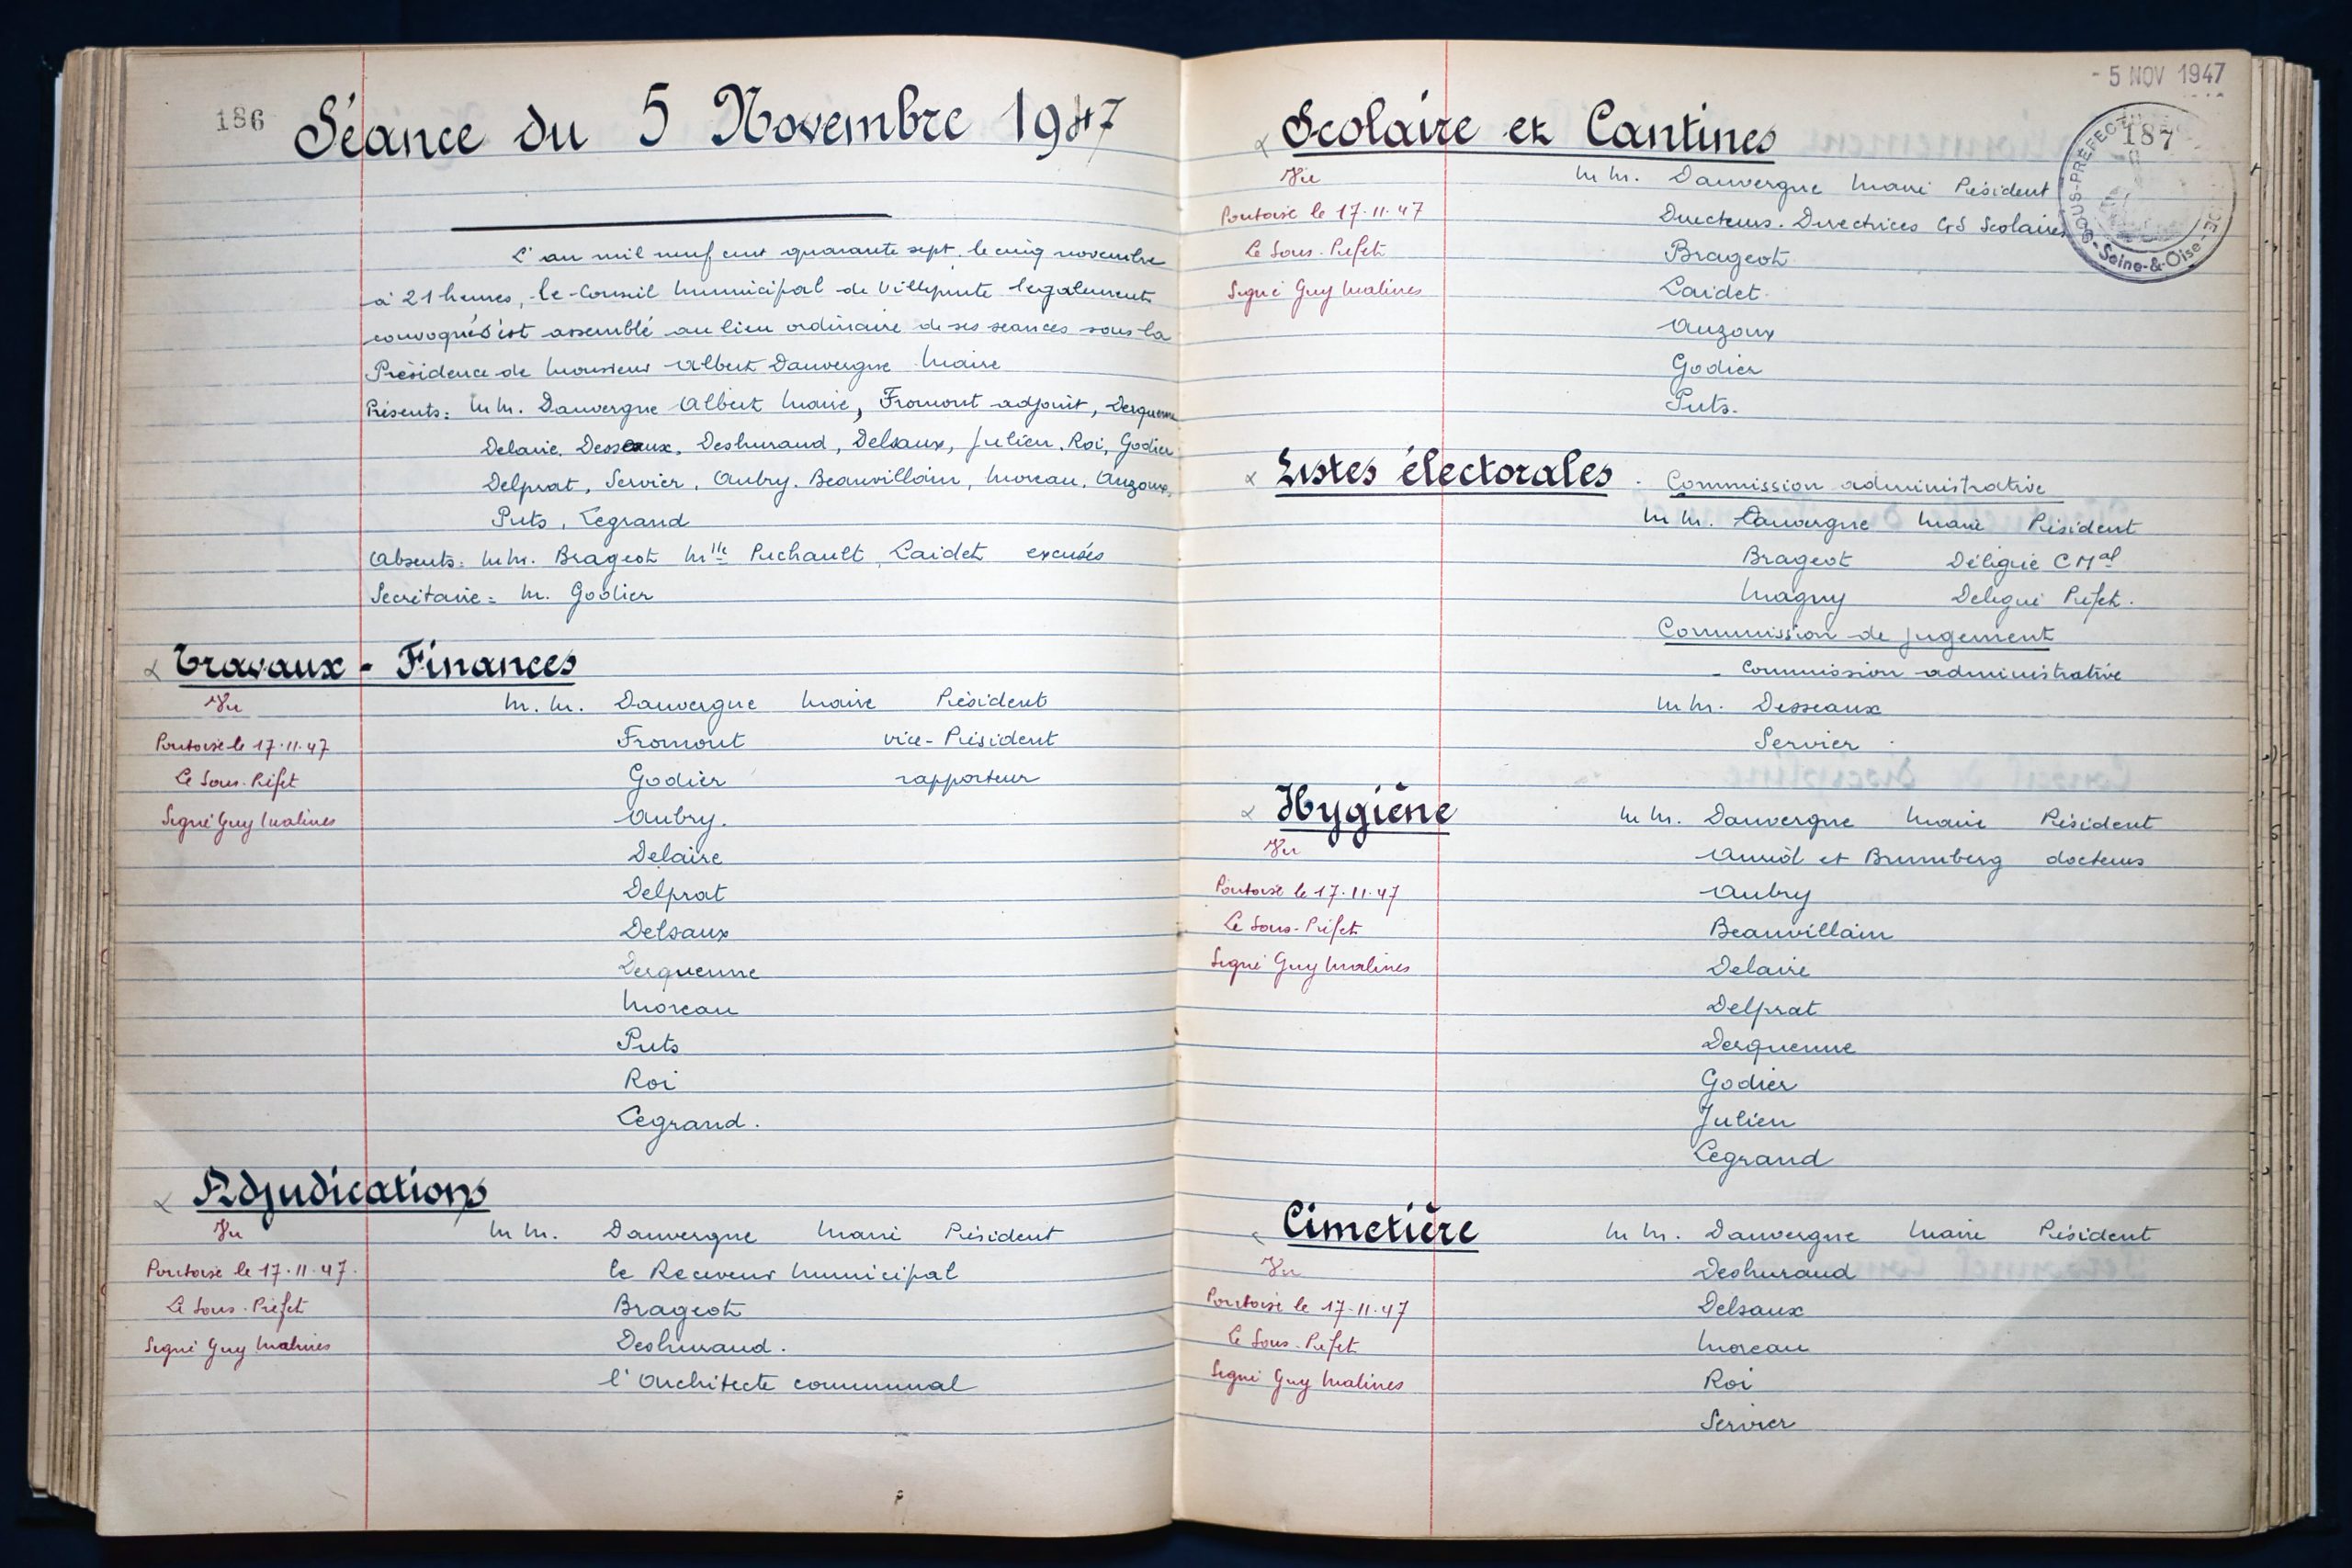 186
Séance du 5 Novembre 1947
L'an mil neuf cent quarante sept. le cinq novembre
à 21 heures, le Conseil Municipal de Villepinte légalement
convoqué s'est assemblé au lieu ordinaire de ses séances sous la
Présidence de Monsieur Albert Dauvergne Maire
Présents: M M. Dauvergne Albert Maire, Fromont adjoint, Derquenne
Delaire, Desseaux, Deshuraud, Delsaux, Julien, Roi, Godier
Delprat, Servier, Aubry. Beauvillain, Moreau, Auzoux,
Puts, Legrand
Absents: M M. Brageot Mlle Puchault, Laidet excusés
Secrétaire = M. Godier
Travaux - Finances
Vu
Pontoise le 17.11.47
Le Sous-Préfet
Signé Guy Malines
M. M. Dauvergne Maire Président
Fromont vice-Président
Godier rapporteur
Aubry.
Delaire
Delprat
Delsaux
Derquenne
Moreau
Puts
Roi
Legrand.
Adjudications
Vu
Pontoise le 17.11.47.
Le Sous-Préfet
Signé Guy Malines
M M. Dauvergne Maire Président
le Receveur Municipal
Brageot
Deshuraud.
l'Architecte communal
- 5 NOV 1947
187
SOUS-PRÉFECTURE
- Seine-&-Oise -
Scolaire et Cantines
Vu
Pontoise le 17.11.47
Le Sous-Préfet
Signé Guy Malines
M M. Dauvergne Maire Président
Directeurs. Directrices GS Scolaires
Brageot
Laidet
Auzoux
Godier
Puts.
Listes électorales . Commission administrative
M M. Dauvergne Maire Président
Brageot Délégué C Mal
Magny Délégué Préfet.
Commission de jugement
- Commission administrative
M M. Desseaux
Servier
Hygiène
Vu
Pontoise le 17.11.47
Le Sous-Préfet
Signé Guy Malines
M M. Dauvergne Maire Président
Auriol et Brumberg docteurs
Aubry
Beauvillain
Delaire
Delprat
Derquenne
Godier
Julien
Legrand
Cimetière
Vu
Pontoise le 17-11-47
Le Sous-Préfet
Signé Guy Malines
M M. Dauvergne Maire Président
Deshuraud
Delsaux
Moreau
Roi
Servier